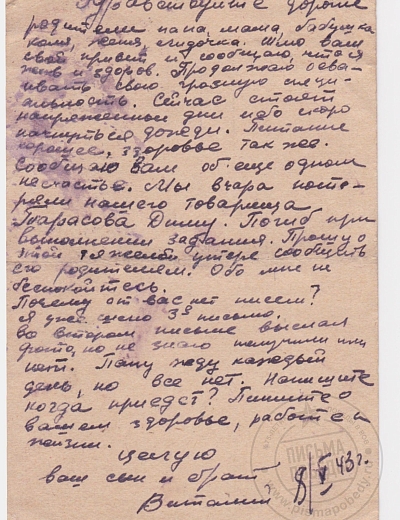 Здравствуйте дорогие
родители папа, мама, бабушка
Катя, Женя, Лидочка. Шлю вам
свой привет и сообщаю, что я
жив и здоров. Продолжаю осва-
ивать свою грозную специ-
альность. Сейчас стоят
напряженные дни ибо скоро
начнуться дожди. Питание
хорошее, здоровье так же.
Сообщаю вам об еще одном
несчастье. Мы вчера поте-
ряли нашего товарища
Тарасова Диму. Погиб при
выполнении задания. Прошу о
этой тяжелой утере сообщить
его родителям. Обо мне не
беспокойтесь.
Почему от вас нет писем?
Я уже шлю 3е письмо,
во втором письме выслал
фото, но не знаю получили или
нет. Папу жду каждый
день, но все нет. Напишите
когда приедет? Пишите о
вашем здоровье, работе и
жизни.
Целую
ваш сын и брат
Виталий
8/V 43 г.
ПИСЬМА
ПОБЕДЫ
www.pismapobedy.ru